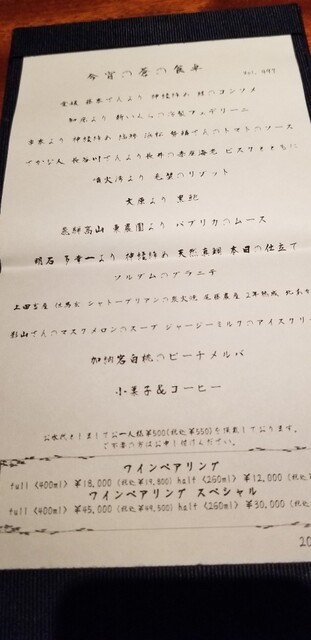 今宵の蒼の食卓 Vol. 499
愛媛 藤本さんより 神経締め 鱧のコンソメ
知床より 新いくらの冷製フェデリーニ
より 神経締め 浜松 さんのトマトのソース
さかな人 長谷川さんより長井の赤座海老 ビスクとともに
噴火湾より 毛蟹のリゾット
大原より 黒鮑
飛騨高山 東農園より パプリカのムース
明石 より 神経締め 天然真鯛 本日の仕立て
ソルダムのグラニテ
上田畜産 但馬玄 シャトーブリアンの炭火焼 2年熟成
さんのマスクメロンのスープ ジャージーミルクのアイスクリー
加納岩白桃のピーチメルバ
小菓子&コーヒー
お水代としましてお一人様¥500(税込¥550)を頂戴しております。
ご不要の方はお申し付けください。
ワインペアリング
full <400ml> ¥18,000 (税込¥19,800) half <260ml> ¥12,000 (税込
ワインペアリング スペシャル
full <400ml> ¥45,000 (税込¥49,500) half <260ml> ¥30,000 (税込
20